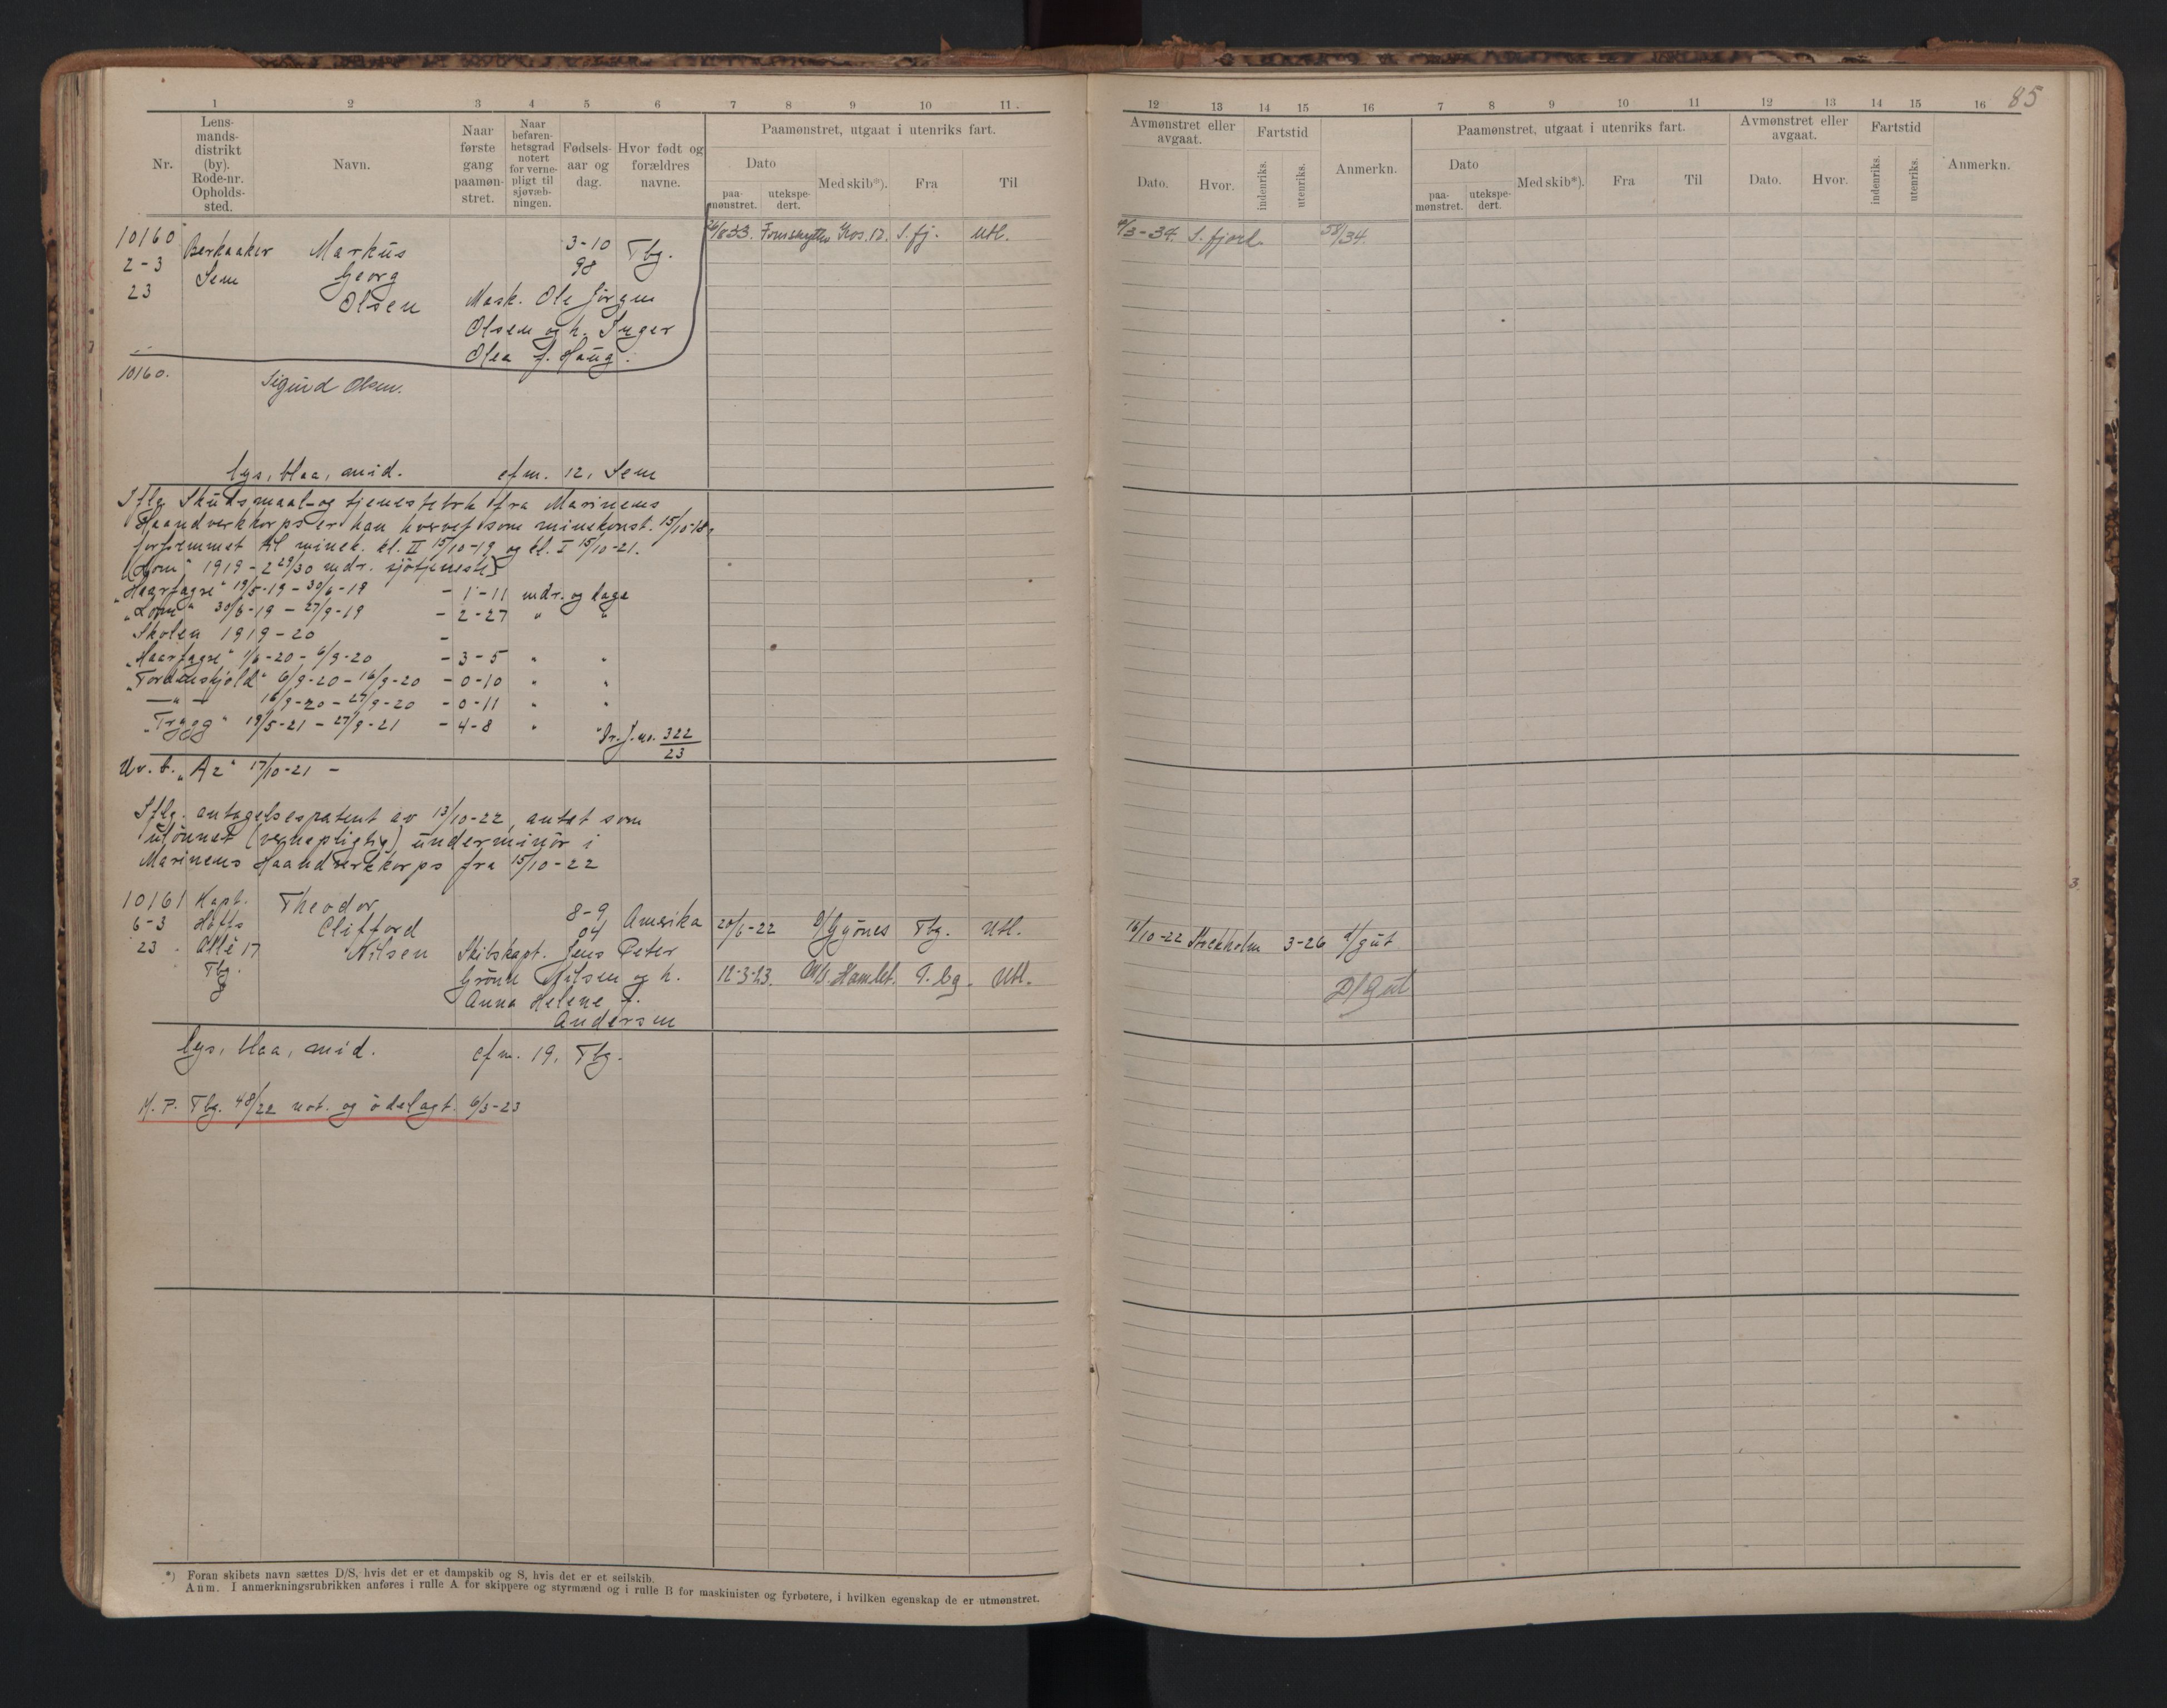 85
1 2 3 4 5 6 7 8 9 10 11
Nr.
Lens-
mands-
distrikt
(by).
Rode-nr.
Opholds-
sted.
Navn.
Naar
første
gang
paamøn-
stret.
Naar
befaren-
hetsgrad
notert
for verne-
pligt til
sjøvæb-
ningen.
Fødsels-
aar og
dag.
Hvor født og
forældres
navne.
Paamønstret, utgaat i utenriks fart.
Dato
paa-
mønstret.
utekspe-
dert.
Med skib*).
Fra
Til
10160 Berkaaker Markus 3-10 Tbg.
2-3 Sem Georg 98
23 Olsen Mask. Ole Jörgen
Olsen og h. Inger
Olea f. Haug.
Kos. 12. S. fj. Utl.
10160. Sigurd Olsen.
lys, blaa, mid. efm. 12, Sem
Iflg. Skudsmaal- og tjenestebok fra Marinens
Haandverkkorps er han hvervet som minekonst. 15/10-18,
forfremmet til minek. kl. II 15/10-19 og kl. I 15/10-21.
1919 - 2 29/30 mdr. sjötjeneste
"Haarfagre" 19/5-19 - 30/6-19 - 1-11 mdr. og dage
30/6-19 - 27/9-19 - 2-27 " "
Skolen 1919-20 -
"Haarfagre" 1/6-20 - 6/9-20 - 3-5 " "
"Tordenskjold" 6/9-20 - 16/9-20 - 0-10 " "
— " — 16/9-20 - 27/9-20 - 0-11 " "
"Trygg" 19/5-21 - 27/9-21 - 4-8 "
J. no. 322/23
Uv. b. "A2" 17/10-21 -
Iflg. antagelsespatent av 13/10-22, antat som
ulönnet (vernepligtig) underminör i
Marinens Haandverkkorps fra 15/10-22
10161 Kapt. Theodor 8-9 Amerika 20/6-22 Tbg. Utl.
6-3 Hoffs Clifford 04
23 Allé 17 Nilsen Skibskapt. Jens Peter
Tbg. Grönn Nilsen og h. 12-3-23. M/S. Hamlet. T.bg. Utl.
Anna Helene f.
Andersen
lys, blaa, mid. efm. 19, Tbg.
M. P. Tbg. 48/22 not. og ödelagt. 6/3-23
*) Foran skibets navn sættes D/S, hvis det er et dampskib og S, hvis det er et seilskib.
Anm. I anmerkningsrubrikken anføres i rulle A for skippere og styrmænd og i rulle B for maskinister og fyrbøtere, i hvilken egenskap de er utmønstret.
12 13 14 15 16 7 8 9 10 11 12 13 14 15 16
Avmønstret eller
avgaat.
Dato.
Hvor.
Fartstid
indenriks.
utenriks.
Anmerkn.
Paamønstret, utgaat i utenriks fart.
Dato
paa-
mønstret.
utekspe-
dert.
Med skib*).
Fra
Til
Avmønstret eller
avgaat.
Dato.
Hvor.
Fartstid
indenriks.
utenriks.
Anmerkn.
S. fjord. 58/34.
16/10-22 Stockholm 3-26 d/gut
D/gut